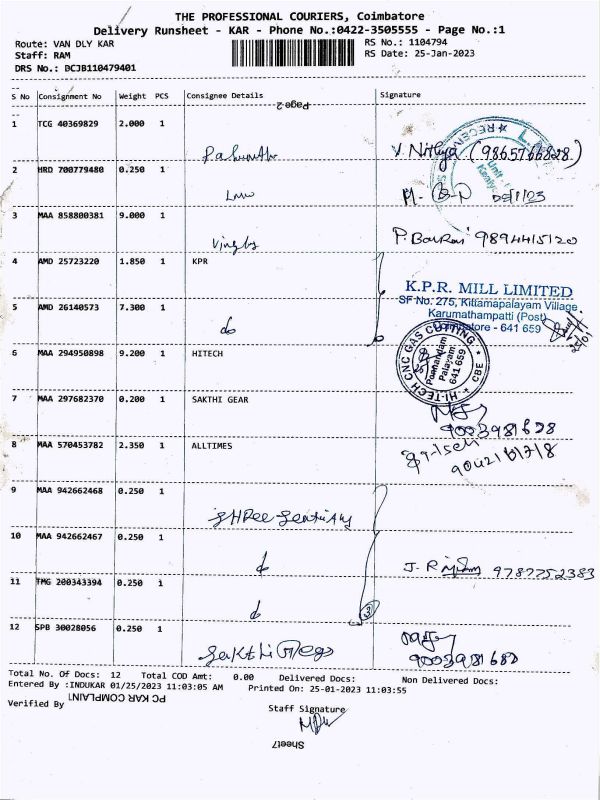 THE PROFESSIONAL COURIERS, Coimbatore
Delivery Runsheet - KAR - Phone No.:0422-3505555 - Page No.:1
Route: VAN DLY KAR
RS No.: 1104794
Staff: RAM
RS Date: 25-Jan-2023
DRS No.: BCJB110479401
S No Consignment No Weight PCS Consignee Details Signature
Page 2
1 TCG 40369829 2.000 1 V. Nithya (9865766828)
RECEIVED
2 HRD 700779480 0.250 1
3 MAA 858800381 9.000 1 9894415120
4 AMD 25723220 1.850 1 KPR
K.P.R. MILL LIMITED
SF No. 275, Kittamapalayam Village
Karumathampatti (Post)
Coimbatore - 641 659
5 AMD 26140573 7.300 1 do
6 MAA 294950898 9.200 1 HITECH
HI-TECH CNC GAS CUTTING * CBE *
Ponnandam
Palayam
641 659
7 MAA 297682370 0.200 1 SAKTHI GEAR
8 MAA 570453782 2.350 1 ALLTIMES
9 MAA 942662468 0.250 1 SHREE
10 MAA 942662467 0.250 1 do 9787752383
11 TMG 200343394 0.250 1 do 3
12 SPB 30028056 0.250 1 Sakthi
Total No. Of Docs: 12 Total COD Amt: 0.00 Delivered Docs: Non Delivered Docs:
Entered By :INDUKAR 01/25/2023 11:03:05 AM Printed On: 25-01-2023 11:03:55
PC KAR COMPLAINT
Verified By
Staff Signature
Sheet7